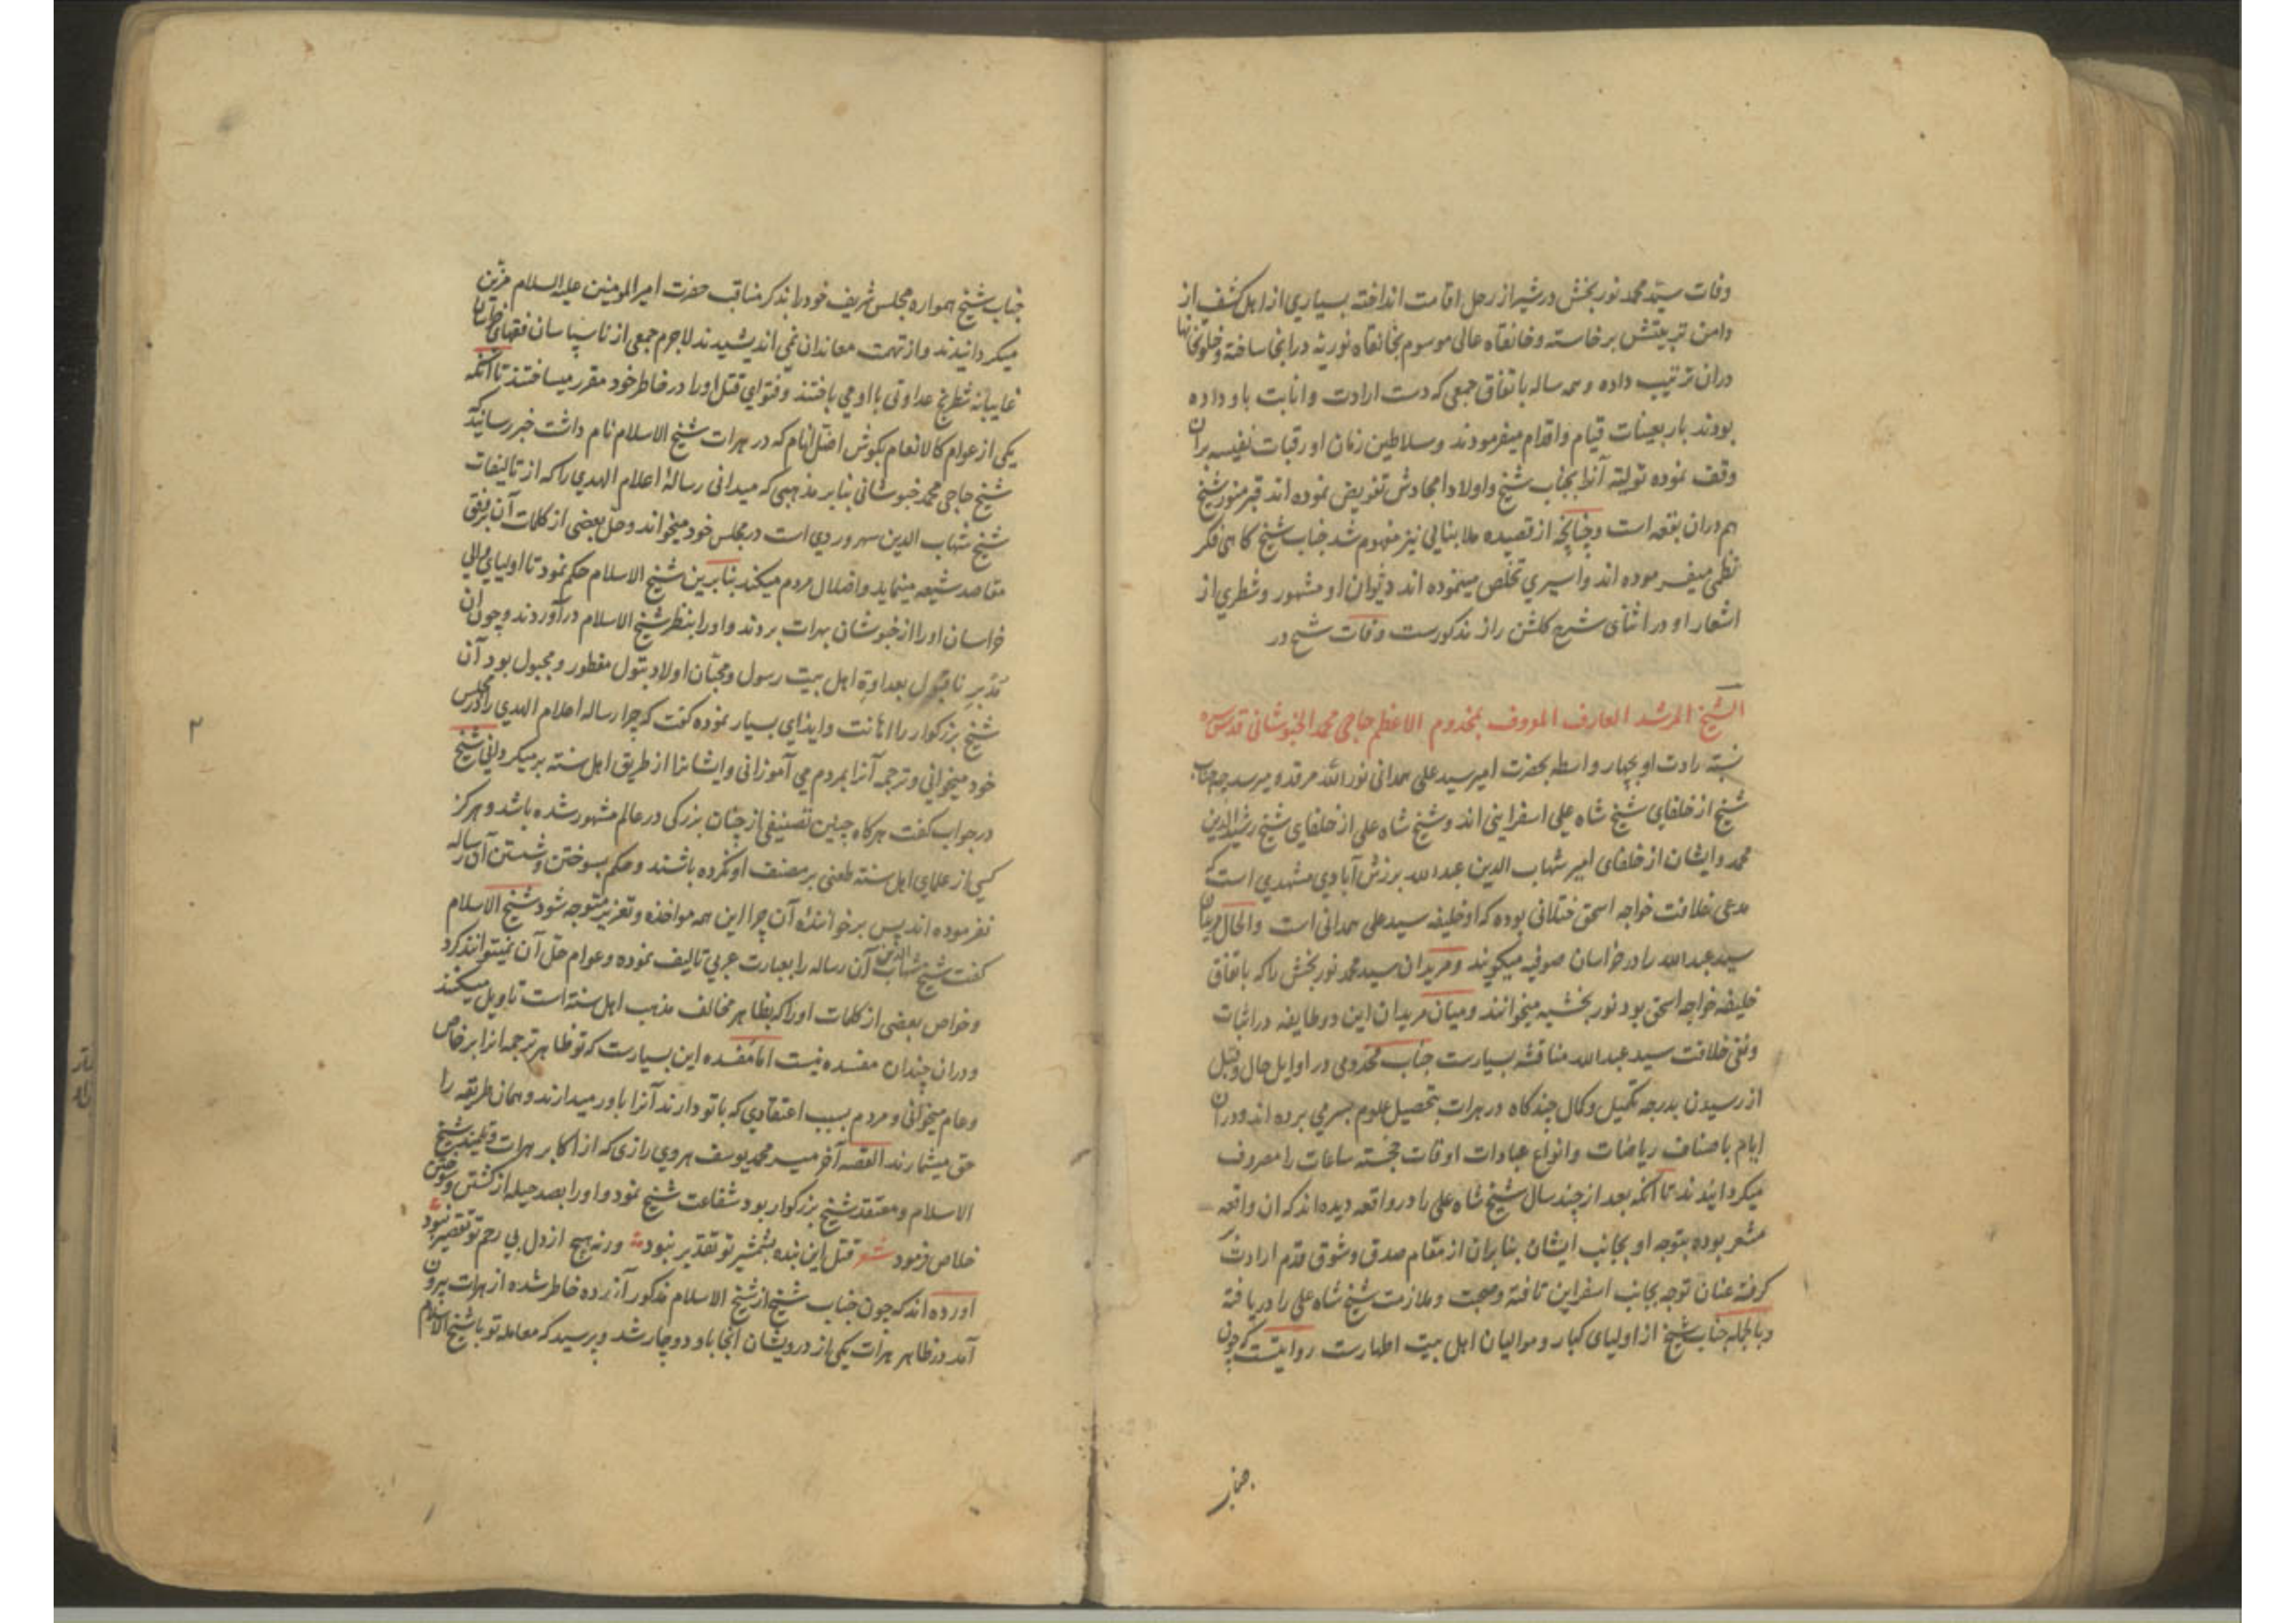 وفات سید محمد نوربخش در شیراز رحل اقامت انداخته بسیاری از اهل کشف از
دامن تربیتش برخاسته و خانقاه عالی موسوم بخانقاه نوریه در انجا ساخته و خلوتخانها
دران ترتیب داده و همه ساله باتفاق جمعی که دست ارادت و انابت باو داده
بودند باربعینات قیام و اقدام میفرمودند و سلاطین زمان او رقبات نفیسه بران
وقف نموده تولیته آنرا بجناب شیخ و اولاد امجادش تفویض نموده اند قبر منور شیخ
هم دران بقعه است و چنانچه از قصیده ملا بنائی نیز مفهوم شد جناب شیخ کاهی فکر
نظمی میفرموده اند و اسیری تخلص مینموده اند دیوان او مشهور و شطری از
اشعار او در اثنای شرح کلشن راز مذکورست وفات شیخ در
الشیخ المرشد العارف المعروف بمخدوم الاعظم حاجی محمد الخبوشانی قدس سره
نسبة ارادت او بچهار واسطه بحضرت امیر سید علی همدانی نور الله مرقده میرسد چه جناب
شیخ از خلفای شیخ شاه علی اسفراینی اند و شیخ شاه علی از خلفای شیخ رشید الدین
محمد و ایشان از خلفای امیر شهاب الدین عبدالله برزش آبادی مشهدی است که
مدعی خلافت خواجه اسحق ختلانی بوده که او خلیفه سید علی همدانی است و الحال مریدان
سید عبدالله را در خراسان صوفیه میکویند و مریدان سید محمد نوربخش را که باتفاق
خلیفه خواجه اسحق بود نوربخشیه میخوانند و میان مریدان این دو طایفه در اثبات
و نفی خلافت سید عبدالله مناقشه بسیارست جناب مخدومی در اوایل حال و قبل
از رسیدن بدرجه تکمیل و کمال چندکاه در هرات بتحصیل علوم بسر می برده اند و دران
ایام باصناف ریاضات و انواع عبادات اوقات خجسته ساعات را مصروف
میکردانیدند تا آنکه بعد از چند سال شیخ شاه علی را در واقعه دیده اند که ان واقعه
مشعر بوده بتوجه او بجانب ایشان بنابران از مقام صدق و شوق قدم ارادت
کرفته عنان توجه بجانب اسفراین تافته و صحبت و ملازمت شیخ شاه علی را دریافته
و بالجمله جناب شیخ از اولیای کبار و موالیان اهل بیت اطهارست روایتست که چون
جناب
جناب شیخ همواره مجلس شریف خود را بذکر مناقب حضرت امیر المومنین علیه السلام مزین
میکردانیدند و از تهمت معاندان نمی اندیشیدند لاجرم جمعی از ناسپاسان فقهای خراسان
غایبانه شطرنج عداوتی با او می باختند و فتوای قتل او را در خاطر خود مقرر میساختند تا آنکه
یکی از عوام کالانعام بکوش اضل انام که در هرات شیخ الاسلام نام داشت خبر رسانید که
شیخ حاجی محمد خبوشانی بنابر مذهبی که میدانی رسالهٔ اعلام الهدی را که از تالیفات
شیخ شهاب الدین سهروردی است در مجلس خود میخواند و حل بعضی از کلمات آن بر وفق
مقاصد شیعه مینماید و اضلال مردم میکند بنابرین شیخ الاسلام حکم نمود تا اولیای موالی
خراسان او را از خبوشان بهرات بردند و او را بنظر شیخ الاسلام درآوردند و چون ان
مدبر ناقبول بعداوة اهل بیت رسول و محبان اولاد بتول مفطور و مجبول بود آن
شیخ بزرکوار را اهانت و ایذای بسیار نموده کفت که چرا رساله اعلام الهدی را در مجلس
خود میخوانی و ترجمه آنرا بمردم می آموزانی و ایشانرا از طریق اهل سنته برمیکردانی شیخ
در جواب کفت هرکاه چنین تصنیفی از چنان بزرکی در عالم مشهور شده باشد و هرکز
کسی از علمای اهل سنته طعنی بر مصنف او نکرده باشند و حکم بسوختن و شستن آن رساله
نفرموده اند پس بر خوانندهٔ آن چرا این همه مواخذه و تعزیر متوجه شود شیخ الاسلام
کفت شیخ شهاب الدین آن رساله را بعبارت عربی تالیف نموده و عوام حل آن نمیتوانند کرد
و خواص بعضی از کلمات او را که بظاهر مخالف مذهب اهل سنته است تاویل میکنند
و دران چندان مفسده نیست اما مفسده این بسیارست که تو ظاهر ترجمه انرا بر خاص
و عام میخوانی و مردم بسبب اعتقادی که با تو دارند آنرا باور میدارند و همان طریقه را
حق میشمارند القصه آخر میر محمد یوسف هروی رازی که از اکابر هرات و تلمیذ شیخ
الاسلام و معتقد شیخ بزرکوار بود شفاعت شیخ نمود و او را بصد حیله از کشتن و سوختن
خلاص فرمود شعر قتل این بنده بشمشیر تو تقدیر نبود ورنه هیچ از دل بی رحم تو تقصیر نبود
اورده اند که چون جناب شیخ از شیخ الاسلام مذکور آزرده خاطر شده از هرات بیرون
آمد در ظاهر هرات یکی از درویشان انجا باو دوچار شد و پرسید که معامله تو با شیخ الاسلام
۲